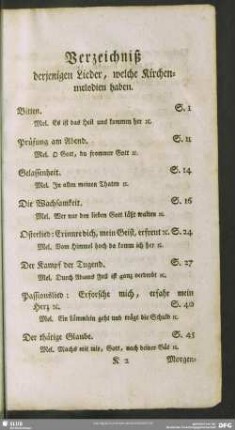 Verzeichniß
derjenigen Lieder, welche Kirchen-
melodien haben.
Bitten. S. 1
Mel. Es ist das Heil uns kommen her ꝛc.
Prüfung am Abend. S. 11
Mel. O Gott, du frommer Gott ꝛc.
Gelassenheit. S. 14
Mel. In allen meinen Thaten ꝛc.
Die Wachsamkeit. S. 16
Mel. Wer nur den lieben Gott läßt walten ꝛc.
Osterlied: Erinnre dich, mein Geist, erfreut ꝛc. S. 24
Mel. Vom Himmel hoch da komm ich her ꝛc.
Der Kampf der Tugend. S. 27
Mel. Durch Adams Fall ist ganz verderbt ꝛc.
Passionslied: Erforsche mich, erfahr mein
Herz ꝛc. S. 40
Mel. Ein Lämmlein geht und trägt die Schuld ꝛc.
Der thätige Glaube. S. 43
Mel. Machs mit mir, Gott, nach deiner Güt ꝛc.
K 2 Morgen-
SLUB
DFG